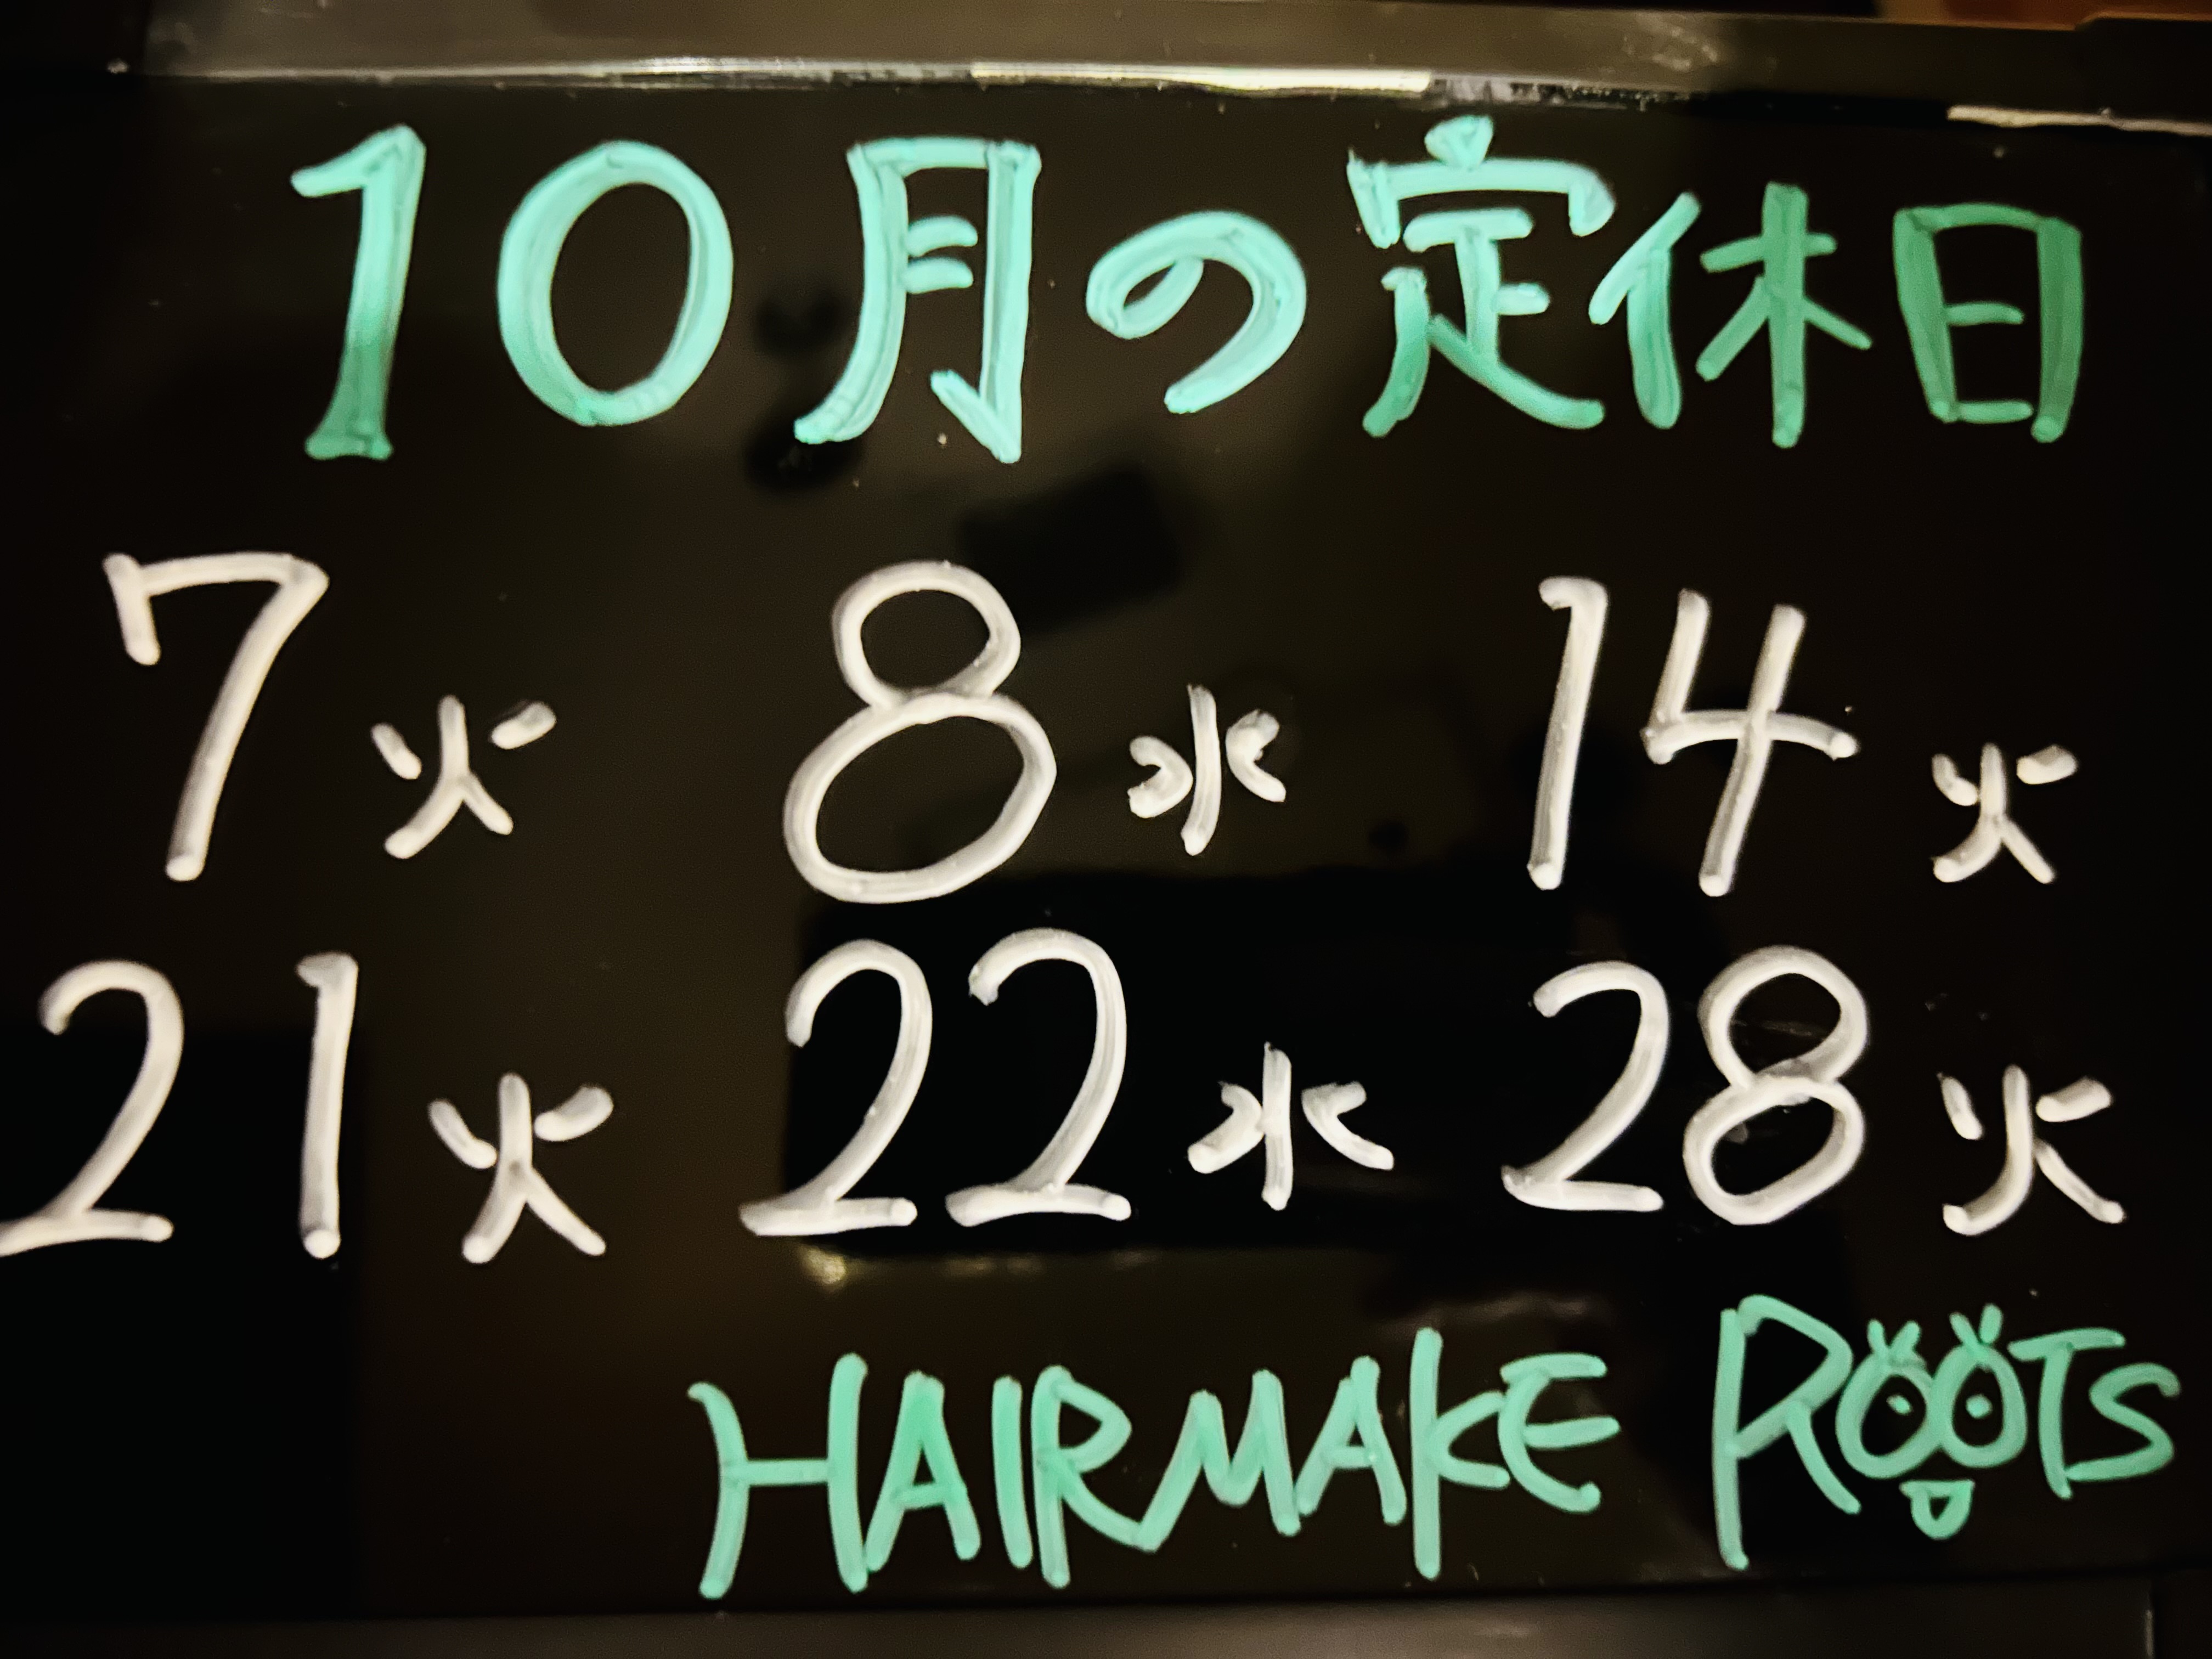 10月の定休日
7火 8水 14火
21火 22水 28火
HAIRMAKE ROOTS